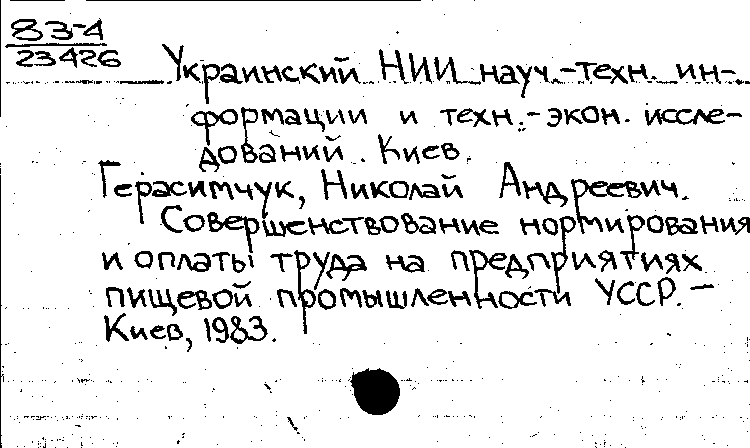 83-4
23426
Украинский НИИ науч.-техн. ин-
формации и техн.-экон. иссле-
дований. Киев.
Герасимчук, Николай Андреевич.
Совершенствование нормирования
и оплаты труда на предприятиях
пищевой промышленности УССР. –
Киев, 1983.